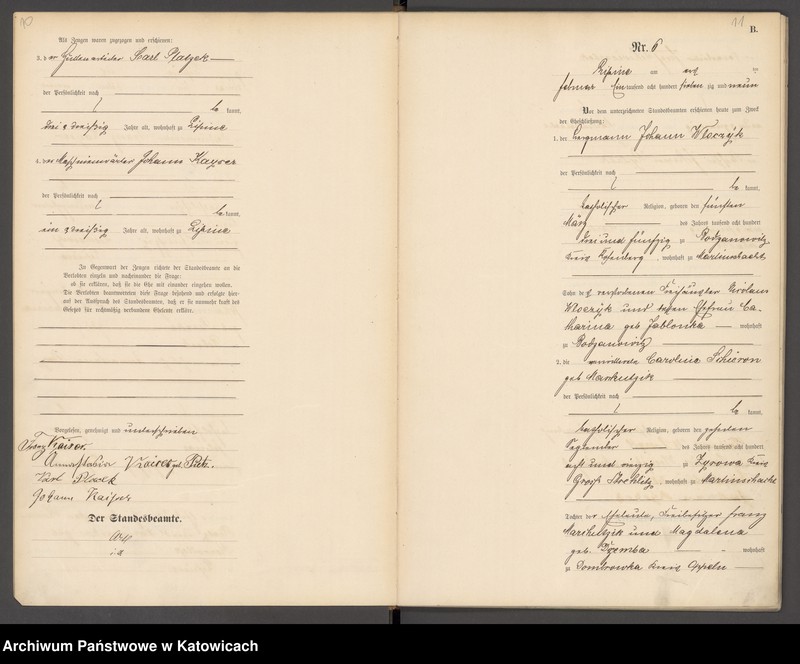 10
Als Zeugen waren zugezogen und erschienen:
3. der Hüttenarbeiter Karl Platzek
der Persönlichkeit nach
be kannt,
drei & dreißig Jahre alt, wohnhaft zu Lipine
4. der Maschinenwärter Johann Kayser
der Persönlichkeit nach
be kannt,
ein & dreißig Jahre alt, wohnhaft zu Lipine
In Gegenwart der Zeugen richtete der Standesbeamte an die
Verlobten einzeln und nacheinander die Frage:
ob sie erklären, daß sie die Ehe mit einander eingehen wollen.
Die Verlobten beantworteten diese Frage bejahend und erfolgte hier-
auf der Ausspruch des Standesbeamten, daß er sie nunmehr kraft des
Gesetzes für rechtmäßig verbundene Eheleute erkläre.
Vorgelesen, genehmigt und unterschrieben
Franz
Annastasia geb.
Johann Kaiser
Der Standesbeamte.
11
B.
Nr. 6
Lipine am acht ten
Februar Ein tausend acht hundert sieben zig und neun
Vor dem unterzeichneten Standesbeamten erschienen heute zum Zweck
der Eheschließung:
1. der Bergmann Johann Wloczyk
der Persönlichkeit nach
be kannt,
katholischer Religion, geboren den fünften
März des Jahres tausend acht hundert
drei und fünfzig zu Bodzanowitz
Kreis Rosenberg, wohnhaft zu Martinschacht
Sohn des verstorbenen Freihäusler
Wloczyk und dessen Ehefrau Ca-
tharina geb. Jablonka wohnhaft
zu Bodzanowitz
2. die verwittwete Caroline Schieron
geb
der Persönlichkeit nach
be kannt,
katholischer Religion, geboren den
September des Jahres tausend acht hundert
acht und vierzig zu Zyrowa Kreis
Groß Strehlitz, wohnhaft zu Martinschacht
Tochter der Eheleute, Franz
und Magdalena
geb. Dzemba wohnhaft
zu Dombrowka Kreis Oppeln
Archiwum Państwowe w Katowicach